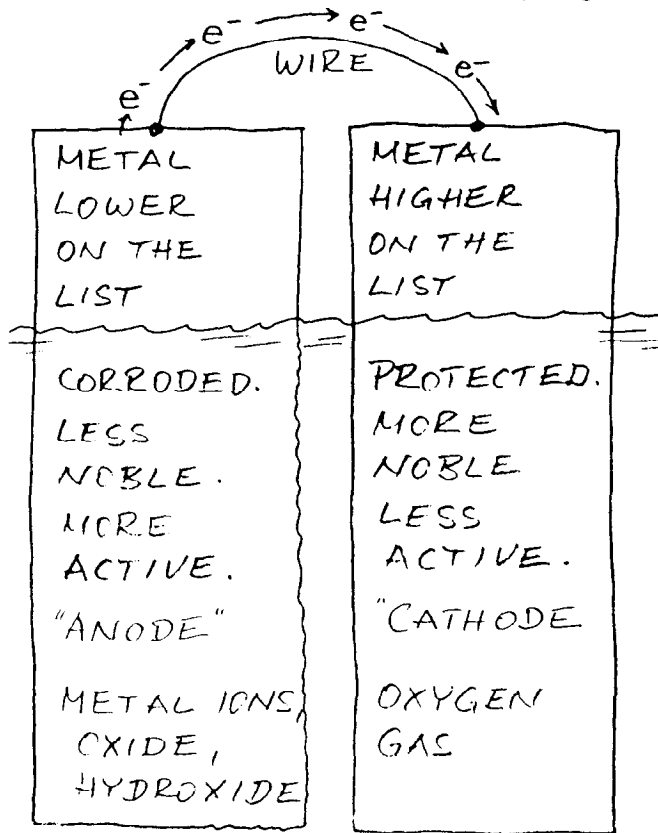 e⁻ e⁻ e⁻ e⁻
WIRE
METAL
LOWER
ON THE
LIST
CORRODED.
LESS
NOBLE.
MORE
ACTIVE.
"ANODE"
METAL IONS,
OXIDE,
HYDROXIDE
METAL
HIGHER
ON THE
LIST
PROTECTED.
MORE
NOBLE
LESS
ACTIVE.
"CATHODE
OXYGEN
GAS